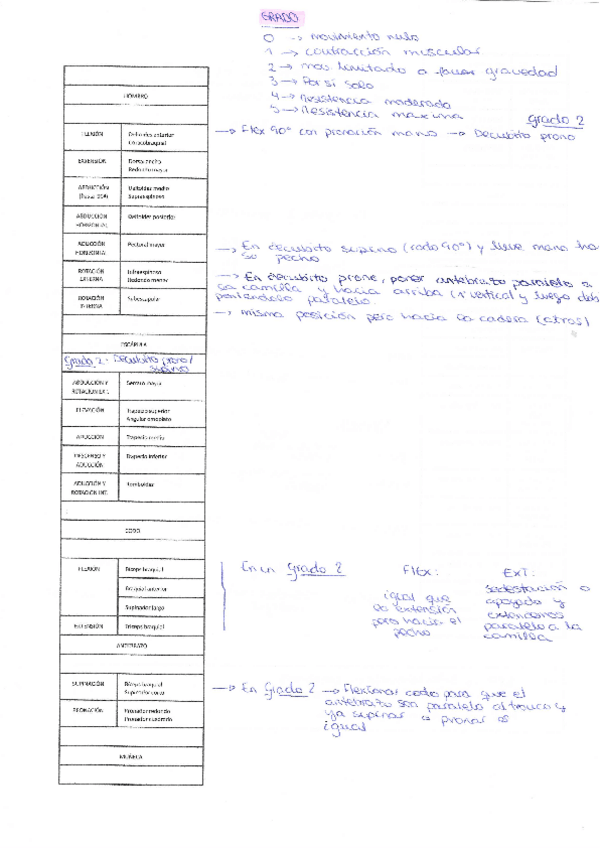 GRADO
0 → movimiento nulo
1 → contracción muscular
2 → mov limitado a favor gravedad
3 → Por si solo
4 → Resistencia moderada
5 → Resistencia maxima
grado 2
HOMBRO
FLEXIÓN Deltoides anterior
Coracobraquial
→ Flex 90° con pronación mano → Decubito prono
EXTENSIÓN Dorsal ancho
Redondo mayor
ABDUCCIÓN Deltoides medio
Supraespinoso
ABDUCCIÓN HORIZONTAL Deltoides posterior
ADUCCIÓN HORIZONTAL Pectoral mayor
→ En decubito supino (codo 90°) y lleve mano ha
su pecho
ROTACIÓN EXTERNA Infraespinoso
Redondo menor
→ En decúbito prono, poner antebrazo paralelo a
la camilla y hacia arriba (1° vertical y luego
poniendolo paralelo.
ROTACIÓN INTERNA Subescapular
→ misma posición pero hacia la cadera (atras)
ESCÁPULA
Grado 2 - Decubito prono /
supino
ABDUCCIÓN Y ROTACIÓN EXT. Serrato mayor
ELEVACIÓN Trapecio superior
Angular omoplato
ADUCCIÓN Trapecio medio
DESCENSO Y ADUCCIÓN Trapecio inferior
ADUCCIÓN Y ROTACIÓN INT. Romboides
CODO
FLEXIÓN Bíceps braquial
Braquial anterior
Supinador largo
EXTENSIÓN Tríceps braquial
En un Grado 2
Flex:
igual que
la extensión
pero hacia el
pecho
EXT:
sedestación o
apoyado y
extendemos
paralelo a la
camilla
ANTEBRAZO
SUPINACIÓN Bíceps braquial
Supinador corto
PRONACIÓN Pronador redondo
Pronador cuadrado
→ En Grado 2 → Flexionar codo para que el
antebrazo son paralelo al tronco y
ya supinar o pronar es
igual
MUÑECA